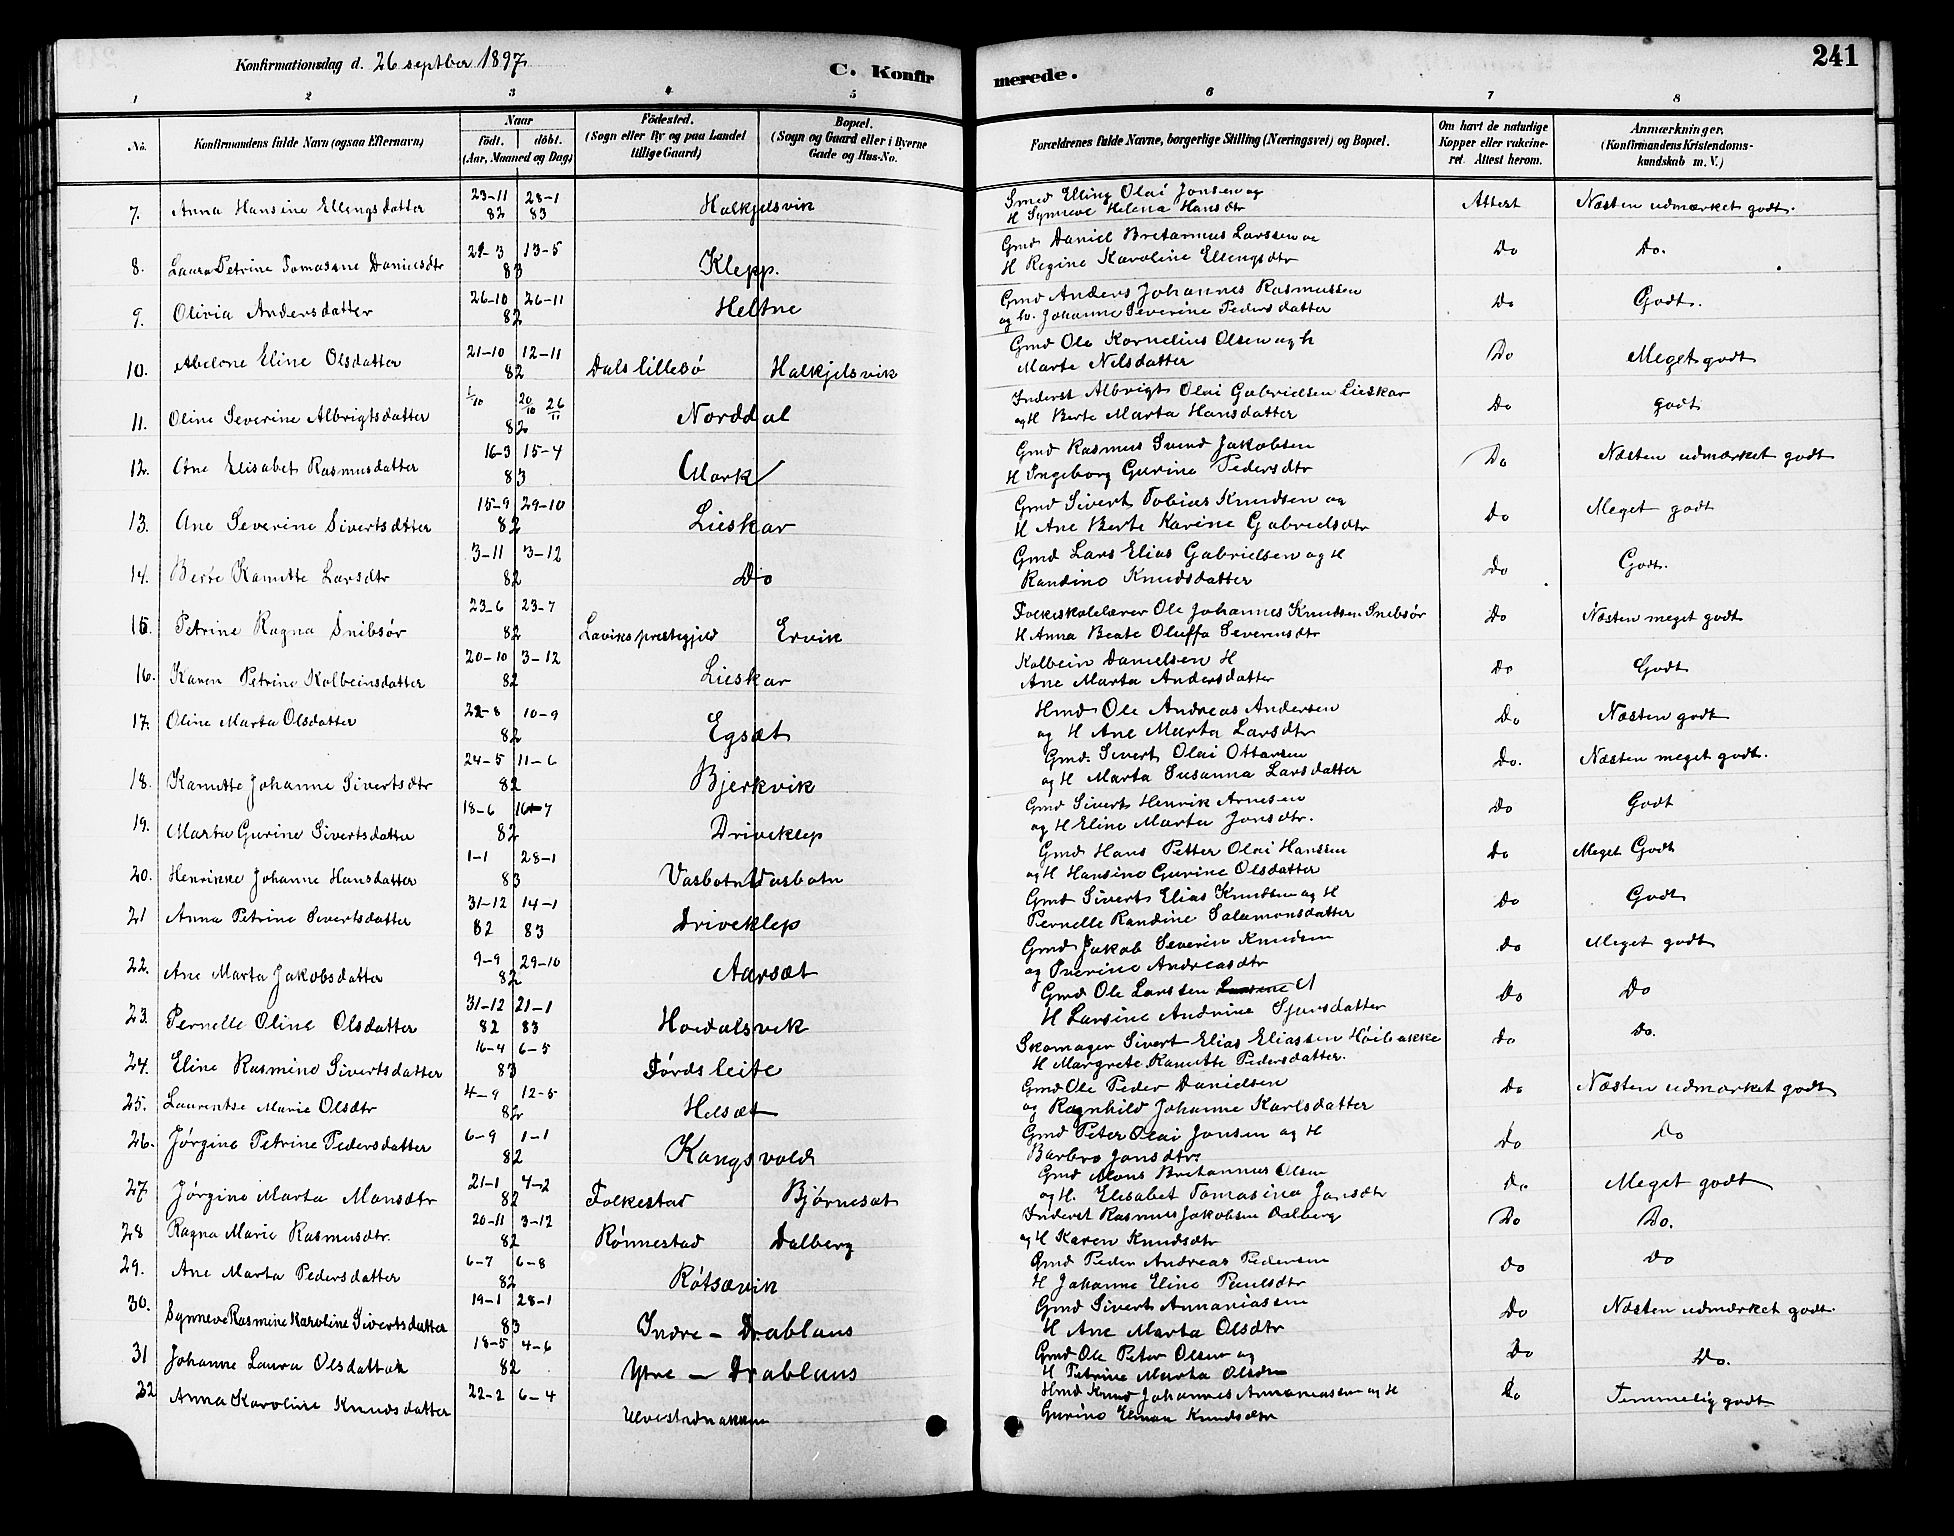 Konfirmationsdag d. 26 septber 1897
C. Konfirmerede.
241
1 2 3 4 5 6 7 8
No. | Konfirmandens fulde Navn (ogsaa Efternavn) | Naar födt. döbt. (Aar, Maaned og Dag) | Födested. (Sogn eller By og paa Landet tillige Gaard) | Bopæl. (Sogn og Gaard eller i Byerne Gade og Hus-No. | Forældrenes fulde Navne, borgerlige Stilling (Næringsvei) og Bopæl. | Om havt de naturlige Kopper eller vakcineret. Attest herom. | Anmærkninger. (Konfirmandens Kristendomskundskab m. V.)
7. Anna Hansine Ellengsdatter 23-11 82 28-1 83 Halkjelsvik Gmd Elling Olai Jonsen og H Synneve Helena Hansdtr Attest Næsten udmærket godt.
8. Laura Petrine Tomasine Danielsdtr 21-3 13-5 83 Klepp. Gmd Daniel Bretannus Larssen og H Regine Karoline Ellengsdtr Do Do.
9. Olivia Andersdatter 26-10 26-11 82 Heltne Gmd Anders Johannes Rasmussen og h. Johanne Severine Pedersdatter Do Godt.
10. Abelone Eline Olsdatter 21-10 12-11 82 Dals lillebö Halkjelsvik Gmd Ole Kornelius Olsen og h Marte Nilsdatter Do Meget godt
11. Oline Severine Albrigtsdatter 1/10 20/10 26/11 82 Norddal Inderst Albrigt Olai Gabrielsen Lieskar og H Berte Marta Hansdatter Do godt
12. Ane Elisabet Rasmusdatter 16-3 15-4 83 Mork Gmd Rasmus Svend Jakobsen H Ingeborg Gurine Pedersdtr Do Næsten udmærket godt
13. Ane Severine Sivertsdatter 15-9 29-10 82 Lieskar Gmd Sivert Tobias Knudsen og H Ane Berte Karine Gabrielsdtr Do Meget godt
14. Berte Kanutte Larsdtr 3-11 3-12 82 Do Gmd Lars Elias Gabrielsen og H Randine Knudsdatter Do Godt.
15. Petrine Ragna Snibsör 23-6 23-7 82 Laviks prestegjeld Ervik Folkeskolelærer Ole Johannes Knutsen Snibsör H Anna Beate Oluffa Severinsdtr Do Næsten meget godt
16. Karen Petrine Kolbeinsdatter 20-10 3-12 82 Lieskar Kolbein Danielsen H Ane Marta Andersdatter Do Godt
17. Oline Marta Olsdatter 22-8 10-9 82 Egsæt Hmd Ole Andreas Andersen og H Ane Marta Larsdtr Do Næsten godt
18. Kanutte Johanne Sivertsdtr 24-5 11-6 82 Bjerkvik Gmd. Sivert Olai Ottarsen og H Marta Susanna Larsdatter Do. Næsten meget godt.
19. Marta Gurine Sivertsdatter 18-6 16-7 82 Driveklep Gmd Sivert Henrik Arnesen og H Eline Marta Jonsdtr. Do Godt
20. Henrikke Johanne Hansdatter 1-1 28-1 83 Vasbotn Vasbotn Gmd Hans Petter Olai Hanssen og H Hansine Gurine Olsdatter Do Meget Godt
21 Anna Petrine Sivertsdatter 31-12 82 14-1 83 Driveklep Gmd Sivert Elias Knudsen og H Pernelle Randine Salamonsdatter Do Godt
22. Ane Marta Jakobsdatter 9-9 29-10 82 Aarsæt Gmd Jakob Severin Knudsen og Iverine Andreasdtr Do Meget godt
23. Pernelle Oline Olsdatter 31-12 82 21-1 83 Hovdalsvik Gmd Ole Larssen H Larsine Andrine Sjursdatter Do Do
24. Eline Rasmine Sivertsdatter 16-4 6-5 83 Fördsleite Skomager Sivert Elias Eliassen Höibakke H Margrete Kanutte Pedersdatter. Do Do.
25. Laurentse Marie Olsdtr 4-9 12-5 82 Helsæt Gmd Ole Peder Danielsen og Ragnhild Johanne Karlsdatter Do Næsten udmærket godt
26. Jörgine Petrine Pedersdatter 6-9 1-1 82 Kangsvold Gmd Peter Olai Jonsen og H Barbro Jonsdtr. Do Do
27 Jörgine Marta Monsdtr 21-1 4-2 82 Folkestad Björnesæt Gmd Mons Bretannus Olsen og H. Elisabet Tomasine Jonsdtr Do Meget godt
28 Ragna Marie Rasmusdtr. 20-11 3-12 82 Rönnestad Dalberg Inderst Rasmus Jakobsen Dalberg og H Karen Knudsdtr Do Do.
29. Ane Marta Pedersdatter 6-7 6-8 82 Rötsævik Gmd Peder Andreas Pedersen H Johanne Eline Paulsdtr Do Do
30. Synneve Rasmine Karoline Sivertsdatter 19-1 28-1 83 Indre - Drablaus Gmd Sivert Annaniassen H Ane Marta Olsdtr Do Næsten udmærket godt
31 Johanne Laura Olsdatter 18-5 4-6 82 Ytre - Drablaus Gmd Ole Peter Olsen og H Petrine Marta Olsdtr Do Do.
32 Anna Karoline Knudsdatter 22-2 6-4 Ulvestadnakken Hmd Knud Johannes Annaniassen og H Gurine Knudsdtr Do Temmelig godt